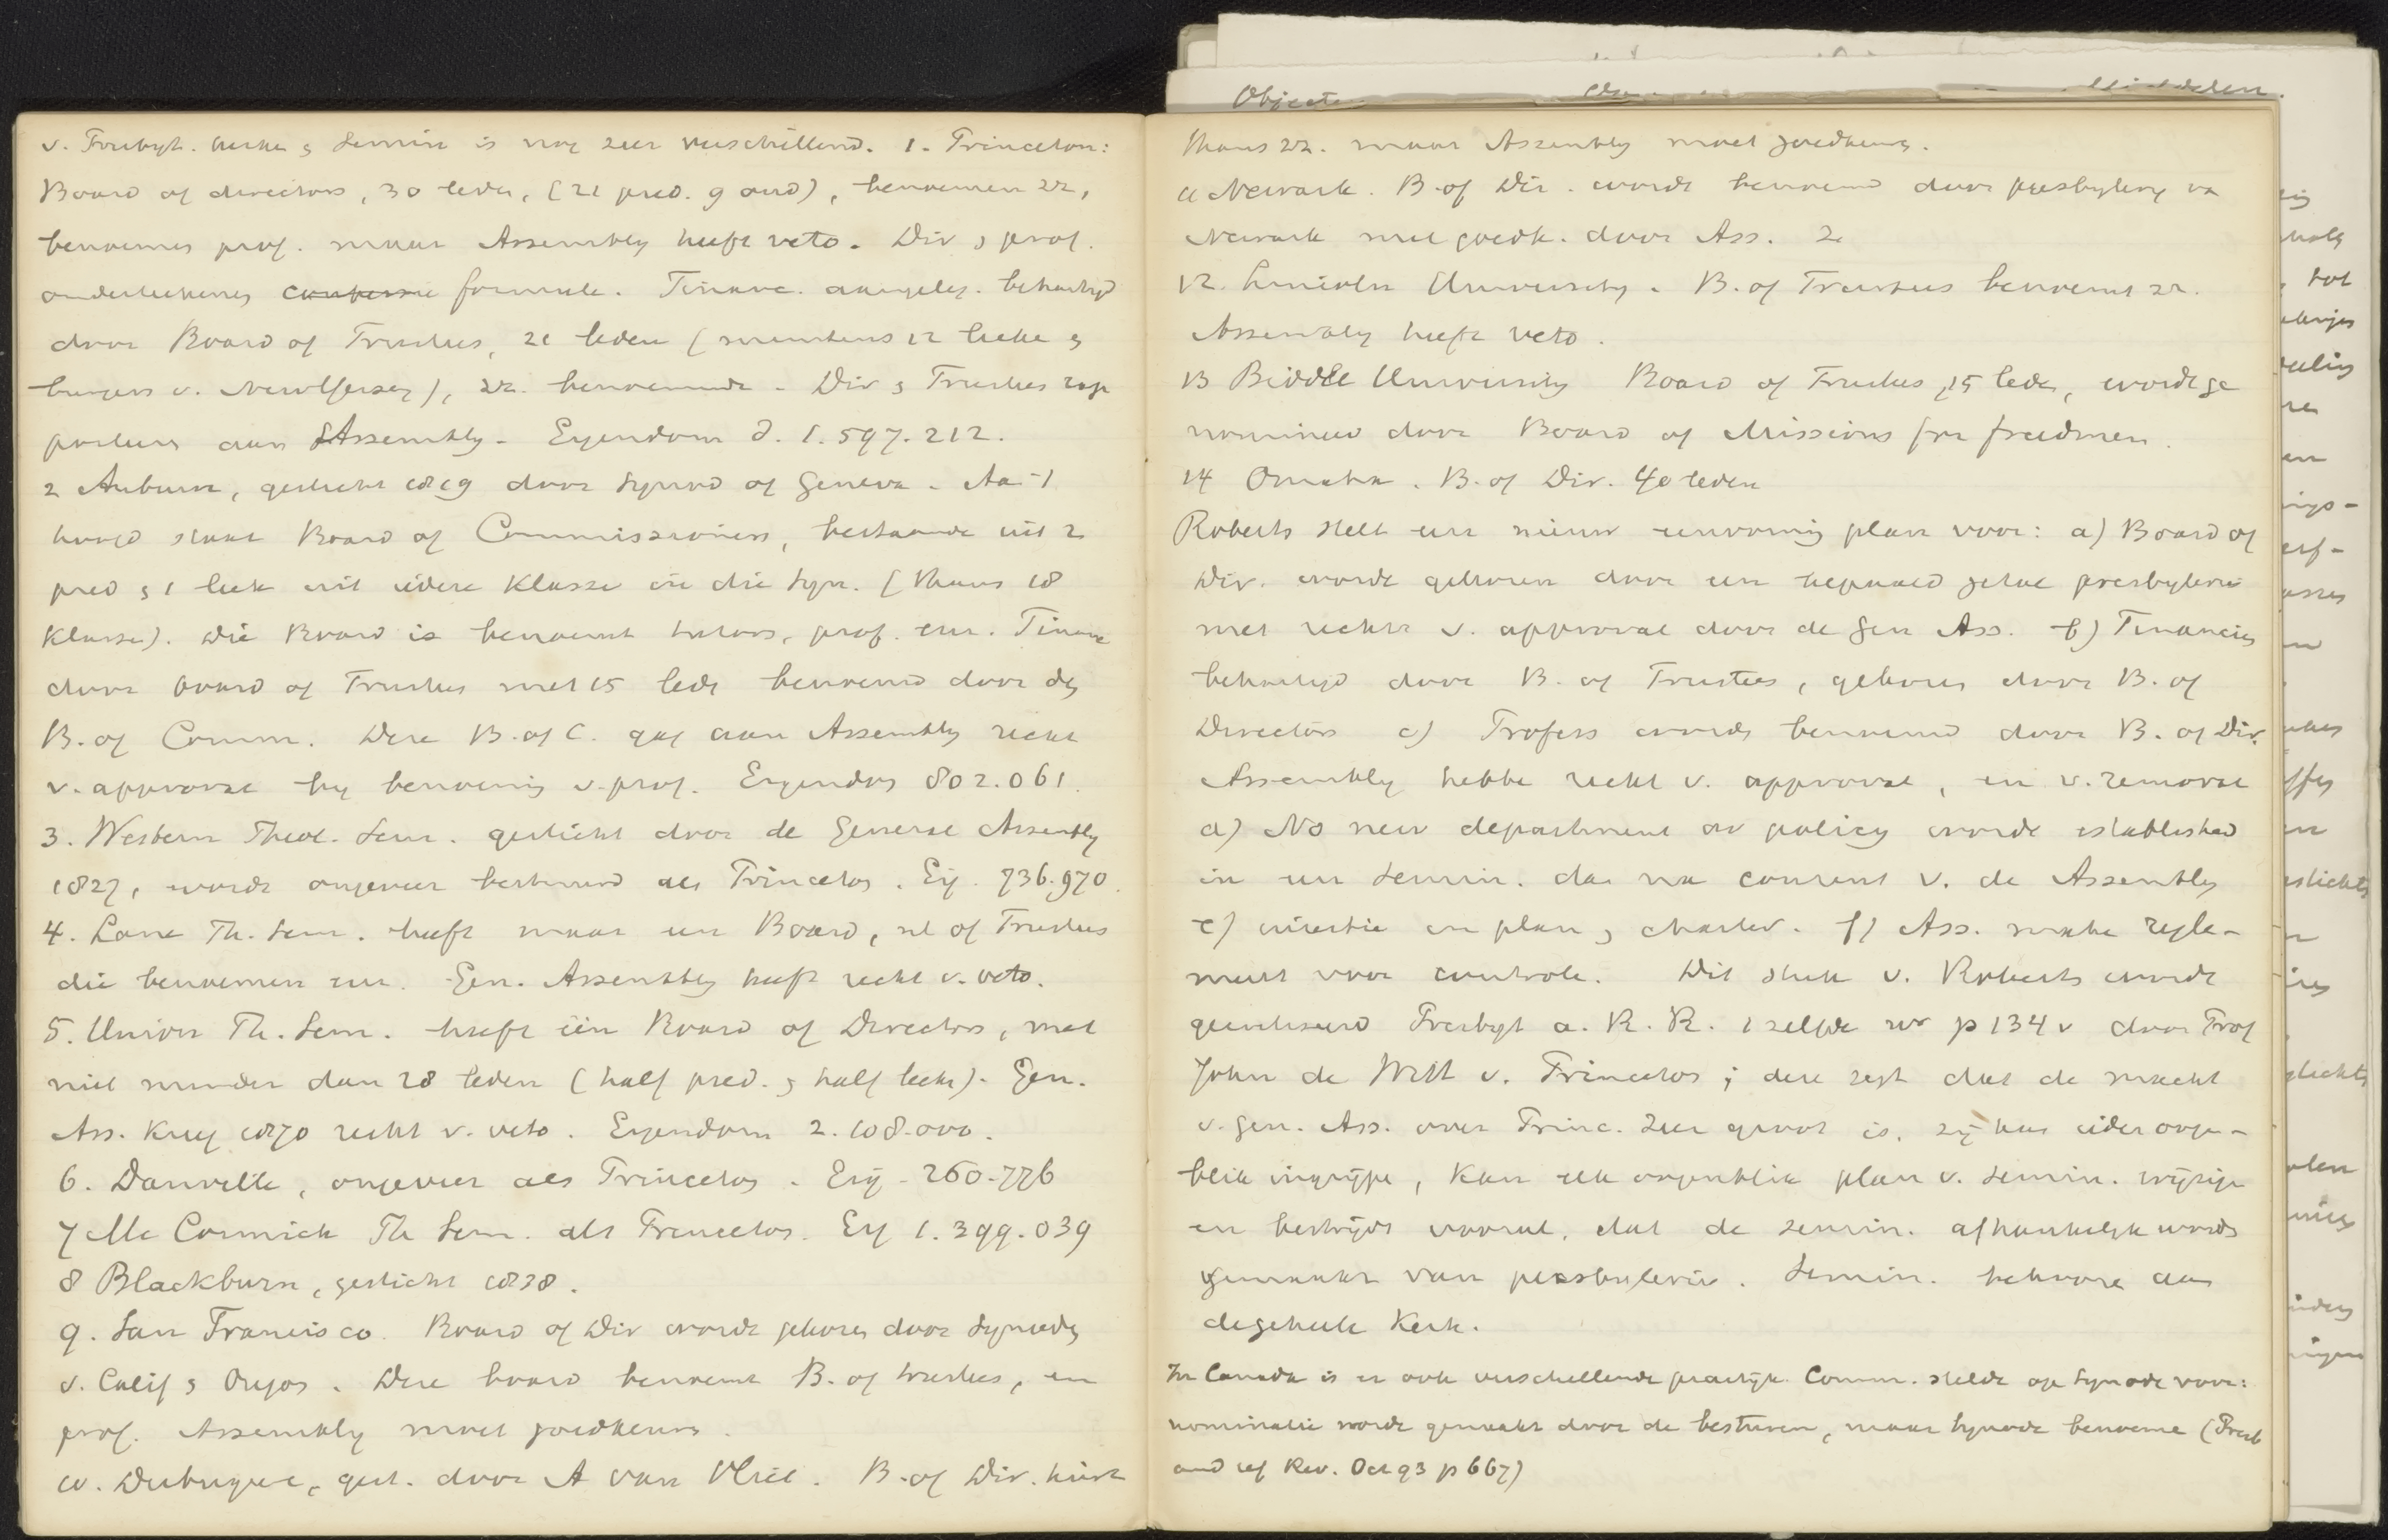 Objecten
v. Presbyt. kerken en Semin is nog zeer verschillend. 1. Princeton:
Board of directors, 30 leden, (21 pred. 9 oud), benoemen zz,
benoemen prof. maar Assembly heeft veto. Dir en prof.
onderteekenen confessie formule. Financ. aangeleg. behartigd
door Board of Trustees, 21 leden (minstens 12 leeke en
burgers v. New Jersey), zz. benoemende. Dir en Trustees rap
porteeren aan Assembly. Eigendom d. 1.597.212.
2 Auburn, gesticht 1819 door Synod of Geneva. Aan 't
hoofd staat Board of Commissioners, bestaande uit 2
pred en 1 leek uit iedere Klasse in die Syn. (thans 18
Klassen). Die Board is benoemt trustees, prof. enz. Financ
door board of Trustees met 15 leden benoemd door den
B. of Comm. Deze B. of C. gaf aan Assembly recht
v. approval by benoeming v. prof. Eigendom 802.061.
3. Western Theol. Sem. gesticht door de General Assembly
1827, wordt ongeveer bestuurd als Princeton. Eig. 736.970.
4. Lane Th. Sem. heeft maar een Board, nl of Trustees
die benoemen enz. Gen. Assembly heeft recht v. veto.
5. Union Th. Sem. heeft één Board of Directors, met
niet minder dan 28 leden (half pred. en half leeke). Gen.
Ass. kreeg 1870 recht v. veto. Eigendom 2.108.000.
6. Danville, ongeveer als Princeton. Eig. 260.776
7 Mc Cormick Th Sem. als Princeton. Eig 1.399.039
8 Blackburn, gesticht 1838.
9. San Francisco. Board of Dir wordt gekozen door Synoden
v. Calif en Oregon. Deze board benoemt B. of trustees, en
prof. Assembly moet goedkeuren.
10. Dubuque, gest. door A van Vliet. B. of Dir. kiest
thans zz. maar Assembly moet goedkeuren.
11 Newark. B. of Dir. wordt benoemd door presbytery van
Newark met goedk. door Ass.
12. Lincoln University. B. of Trustees benoemt zz.
Assembly heeft veto.
13 Biddle University Board of Trustees, 15 leden, wordt ge
nomineerd door Board of Missions for freedmen.
14 Omaha. B. of Dir. 40 leden
Roberts stelt een nieuw eenvormig plan voor: a) Board of
Dir. wordt gekozen door een bepaald getal presbyterien
met recht v. approval door de Gen Ass. b) Financien
behartigd door B. of Trustees, gekozen door B. of
Directors c) Profess worden benoemd door B. of Dir.
Assembly hebbe recht v. approval, en v. removal
d) No new department or policy worde established
in een Semin. dan na consent v. de Assembly
e) insertie in plan en charter. f) Ass. make regle-
ment voor controle. Dit stuk v. Roberts wordt
gecritiseerd Presbyt a. R. R. zelfde nr p 134 v door Prof
John de Witt v. Princeton; deze zegt dat de macht
v. Gen. Ass. over Princ. zeer groot is, zij kan ieder oogen-
blik ingrijpen, kan elk oogenblik plan v. Semin. wijzigen
en bestrijdt vooral, dat de Semin. afhankelijk worden
gemaakt van presbyterien. Semin. behooren aan
de geheele Kerk.
In Canada is er ook verschillende practijk. Comm. stelde op Synode voor:
nominatie worde gemaakt door de besturen, maar Synode benoeme (Presb
and ref Rev. Oct 93 p 667)